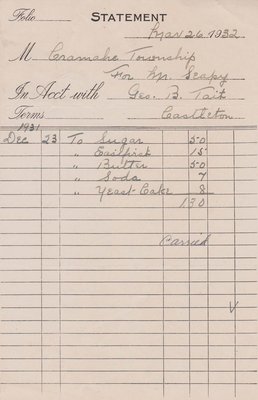 Folio STATEMENT
Mar 26 1932
M Cramahe Township
For Mr. Seapy
In Acct with Geo. B. Tait
Terms Castleton
1931
Dec 23 To Sugar 50
" 15
" Butter 50
" Soda 7
" Yeast Cake 8
130
Carried